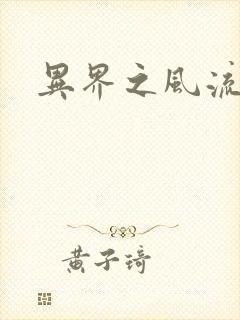 異界之風流
黃子琦